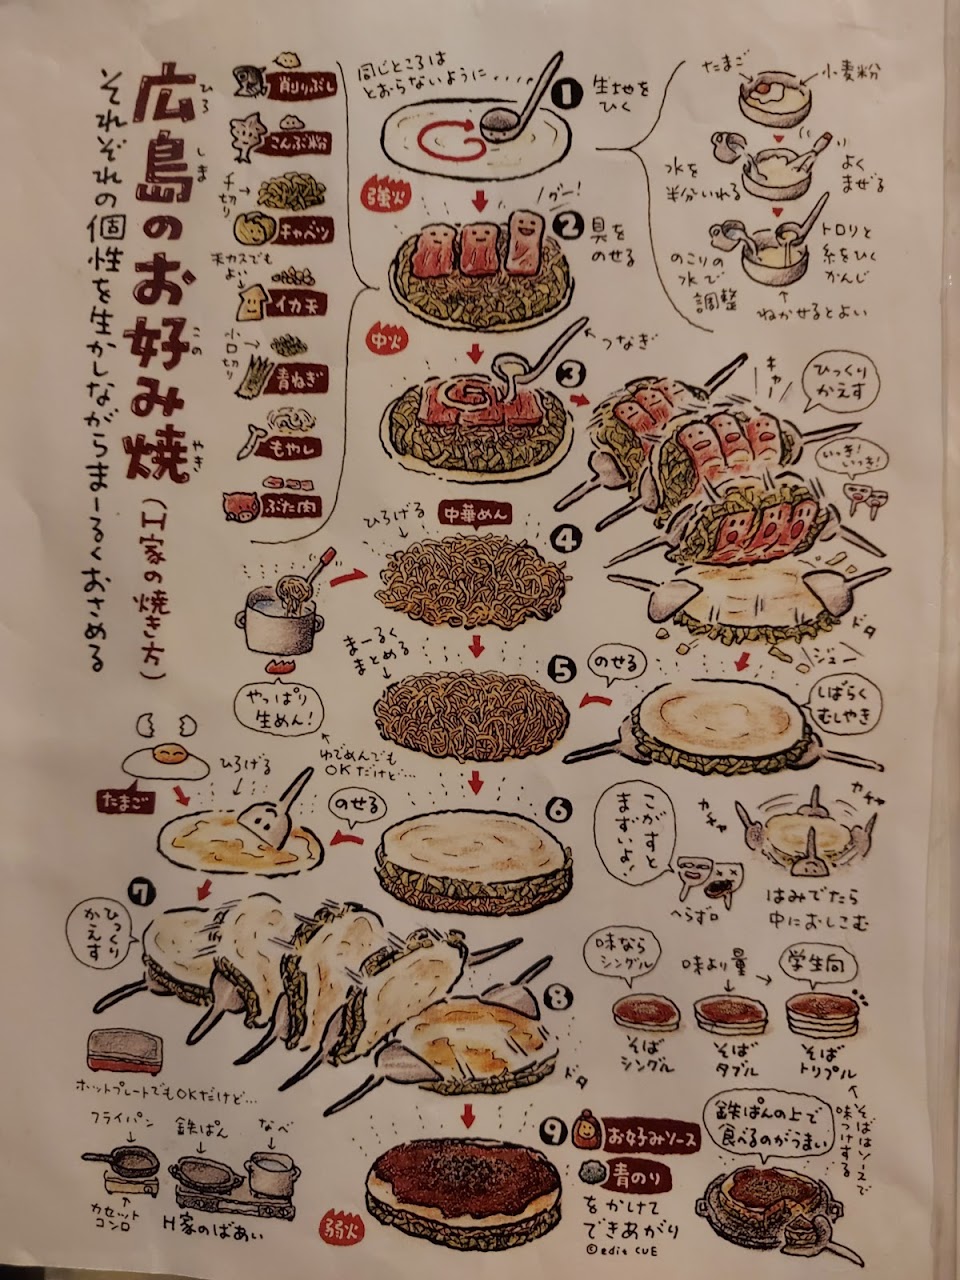 広島のお好み焼
ひろ
しま
この
やき
(H家の焼き方)
それぞれの個性を生かしながらまーるくおさめる
削りぶし
こんぶ粉
千切り
キャベツ
天カスでも
よい
イカ天
小口切り
青ねぎ
もやし
ぶた肉
同じところは
とおらないように・・・・
1
生地を
ひく
たまご
小麦粉
水を
半分いれる
よく
まぜる
のこりの
水で
調整
トロリと
糸をひく
かんじ
ねかせるとよい
強火
2
具を
のせる
中火
3
つなぎ
キャー
ひっくり
かえす
いっき!
いっき!
ドタ
ジュー
しばらく
むしやき
のせる
ひろげる
中華めん
4
まーるく
まとめる
5
やっぱり
生めん!
ゆでめんでも
OKだけど…
たまご
ひろげる
のせる
6
こがすと
まずいよ!
へらずロ
カチャ
カチャ
はみでたら
中におしこむ
7
ひっくり
かえす
8
ドタ
味なら
シングル
味より量
学生向
そば
シングル
そば
ダブル
そば
トリプル
そばはソースで
味つけする
ホットプレートでもOKだけど…
フライパン
鉄ぱん
なべ
カセット
コンロ
H家のばあい
弱火
9
お好みソース
青のり
をかけて
できあがり
©edit CUE
鉄ぱんの上で
食べるのがうまい